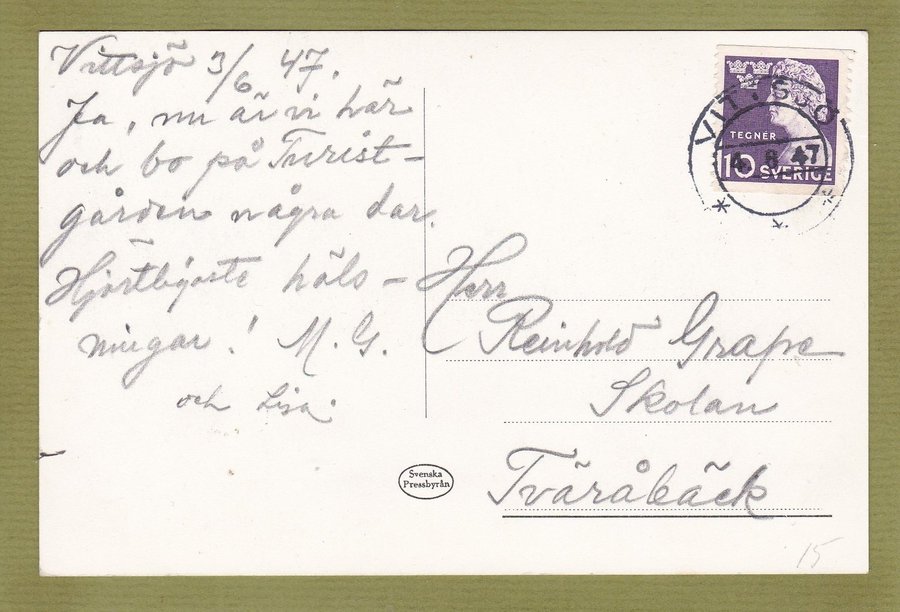 Vittsjö 3/6 47.
Ja, nu är vi här
och bo på Turist-
gården några dar.
Hjärtligaste häls-
ningar! M. G.
och Lisa.
VITTSJÖ
4 6 47
TEGNÉR
10 SVERIGE
Herr
Reinhold Grape
Skolan
Tväråbäck
Svenska
Pressbyrån
15